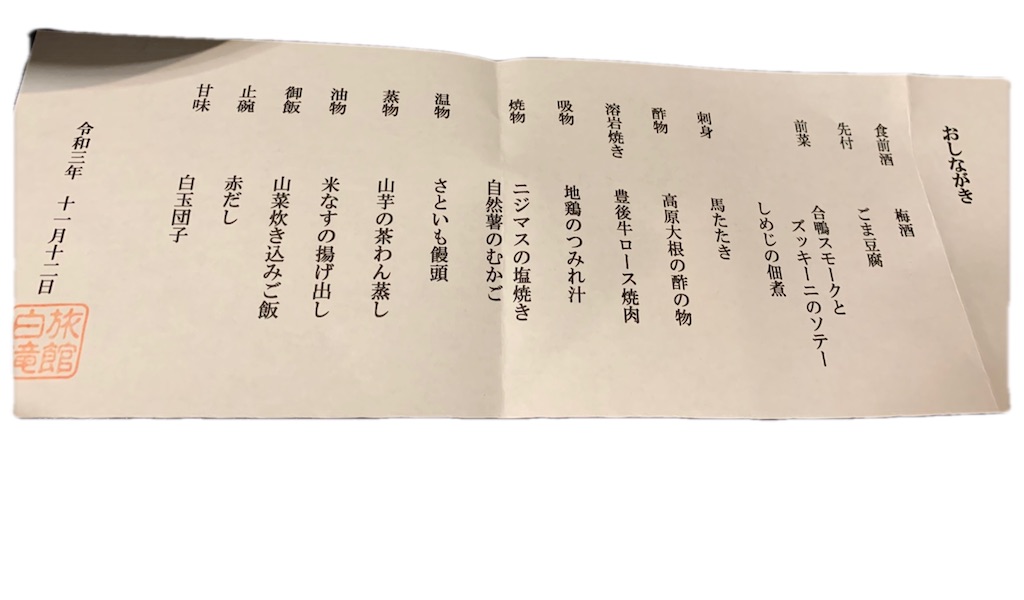 おしながき
食前酒　梅酒
先付　ごま豆腐
前菜　合鴨スモークと
ズッキーニのソテー
しめじの佃煮
刺身　馬たたき
酢物　高原大根の酢の物
溶岩焼き　豊後牛ロース焼肉
吸物　地鶏のつみれ汁
焼物　ニジマスの塩焼き
自然薯のむかご
温物　さといも饅頭
蒸物　山芋の茶わん蒸し
油物　米なすの揚げ出し
御飯　山菜炊き込みご飯
止碗　赤だし
甘味　白玉団子
令和三年　十一月十二日
旅館
白滝